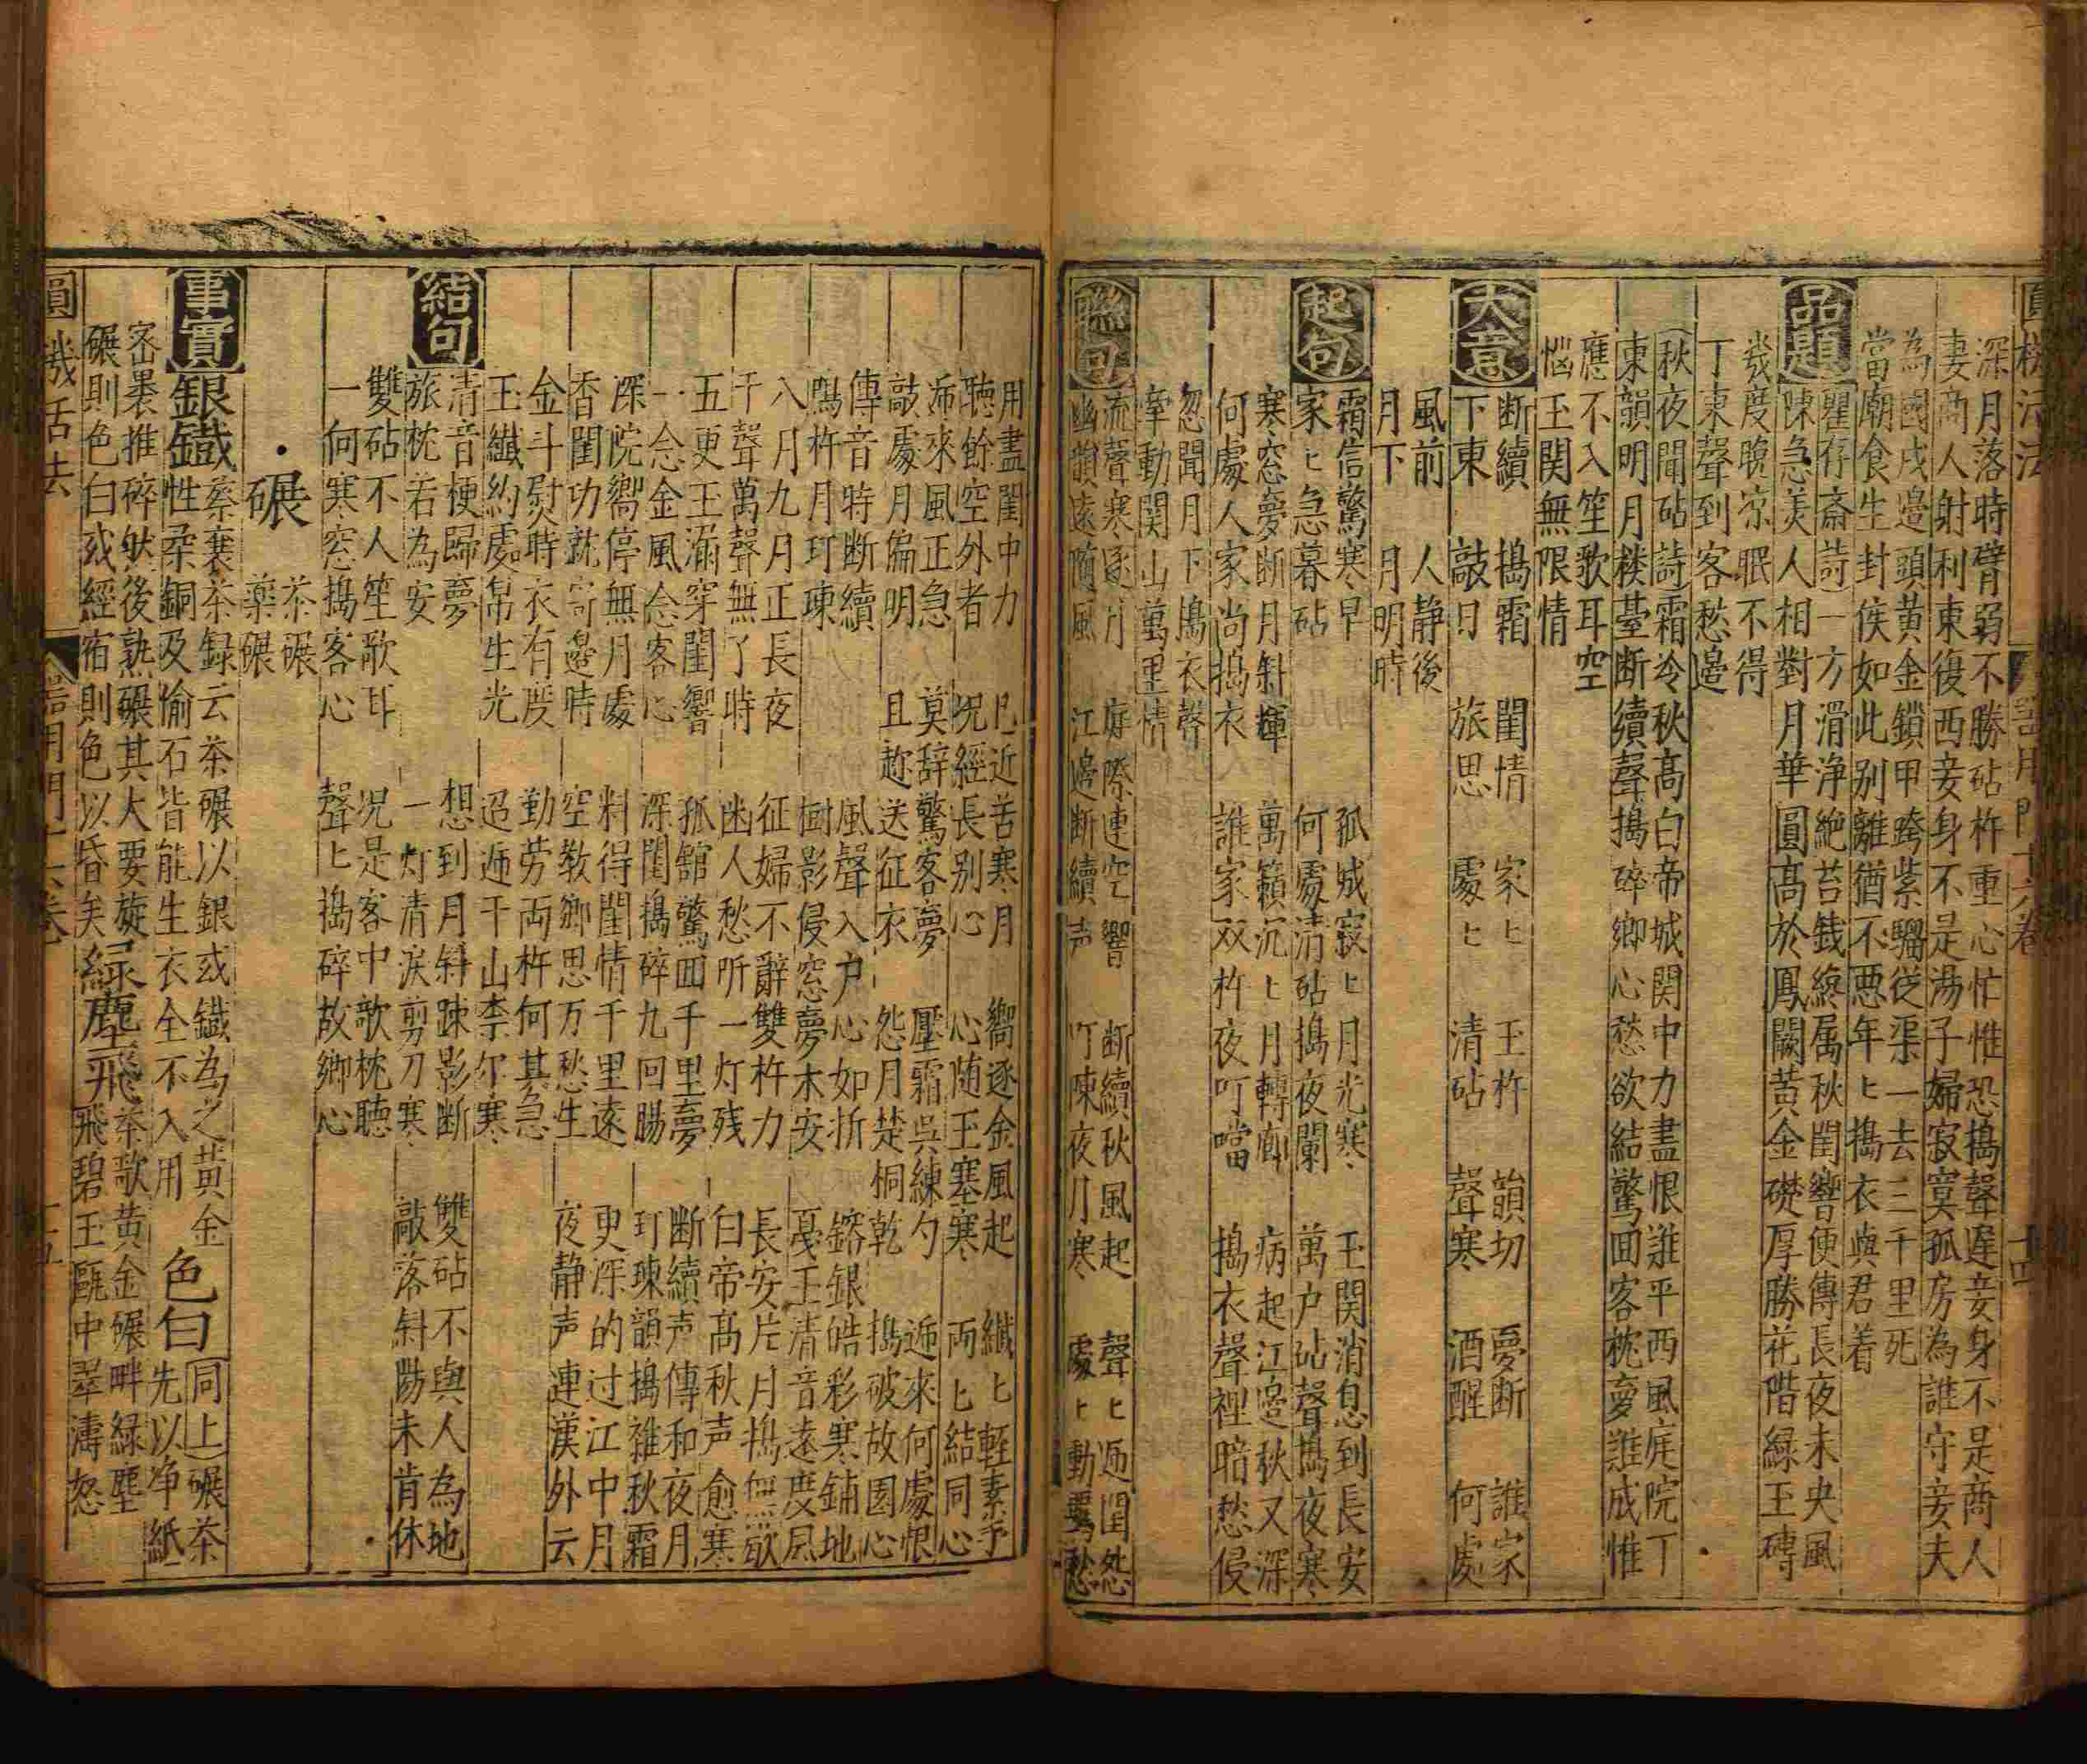 圓機活法 器用門十六卷 十四
深月落時臂弱不勝砧杵重心忙惟恐搗聲遲妾身不是商人
妻商人射利東復西妾身不是湯子婦寂寞孤房為誰守妾夫
為國戍邊頭黃金鎖甲跨紫騮從渠一去三千里死
當廟食生封侯如此别離猶不悪年ヒ搗衣與君着
品題
瞿存斋詩一方渭浄絶苔銭線属秋閨響便傳長夜未央風
陳急美人相對月華圓高於鳳闕黃金礎厚勝花階緑玉磚
幾度晚凉眠不得
丁東聲到客愁邊
秋夜聞砧詩霜冷秋高白帝城関中力盡恨誰平西風庭院丁
東韻明月楼䑓断續聲搗碎郷心愁欲結驚囬客枕夢誰成惟
應不入笙歌耳空
悩玉関無限情
大意
断續 搗霜 閨情 家ヒ 玉杵 韻切 夢断 誰家
下東 敲月 旅思 處ヒ 清砧 聲寒 酒醒 何處
風前 人静後
月下 月明時
起句
霜信驚寒早 孤城寂ヒ月光寒 玉関消息到長安
家ヒ急暮砧 何處清砧搗夜闌 萬户砧聲搗夜寒
寒窓夢断月斜輝 萬籟沉ヒ月轉廊 病起江邊秋又深
何處人家尚搗衣 誰家双杵夜叮噹 搗衣聲裡暗愁侵
忽聞月下搗衣聲
牽動関山萬里情
聮句
流聲寒逐月 庭際連空響 断續秋風起 聲ヒ迊閨怨
幽韻遠随風 江邊断續声 叮陳夜月寒 處ヒ動羈愁
用盡閨中力 卩近苦寒月 嚮逐金風起 纎ヒ輕素手
聴餘空外者 况經長别心 心随玉塞寒 両ヒ結同心
㳍來風正急 莫辞驚客夢 壓霜吳練勺 迊來何處恨
敲處月偏明 且趂送征衣 怨月楚桐乾 搗破故園心
傳音時断續 風聲入户心如折 鎔銀皓彩寒鋪地
鳴杵月玎㻋 樹影侵窓夢未安 戞玉清音遠度風
八月九月正長夜 征婦不辭雙杵力 長安片月搗無歇
千聲萬聲無了時 幽人愁听一灯残 白帝高秋声愈寒
五更玉漏穿閨響 孤舘驚囬千里夢 断續声傳和夜月
一念金風念客心 深閨搗碎九回腸 玎㻋韻搗雜秋霜
深院嚮停無月處 料得閨情千里遠 更深的过江中月
香閨功就寄邉時 空敎郷思万愁生 夜静声連漢外云
金斗熨時衣有度 勤劳両杵何其急
玉纎約處帛生光 迢遞千山柰尔寒
結句
清音梗歸夢 想到月斜踈影断 雙砧不與人為地
旅枕若為安 一灯清淚剪刀寒 敲落斜陽未肯休
雙砧不人笙歌耳 况是客中歌枕聴
一何寒窓搗客心 聲ヒ搗碎故郷心
碾
茶碾
藥碾
事實
銀鐡 蔡襄茶録云茶碾以銀或鐡為之黃金
性柔銅及愉石皆能生衣全不入用 色白 同上碾茶
先以净紙
宻褁推碎然後熟碾其大要旋
碾則色白或經宿則色以昏矣 緑塵飛 茶歌黄金碾畔緑塵
飛碧玉甌中翠濤怒
圓機活法 器用門十六卷 十五